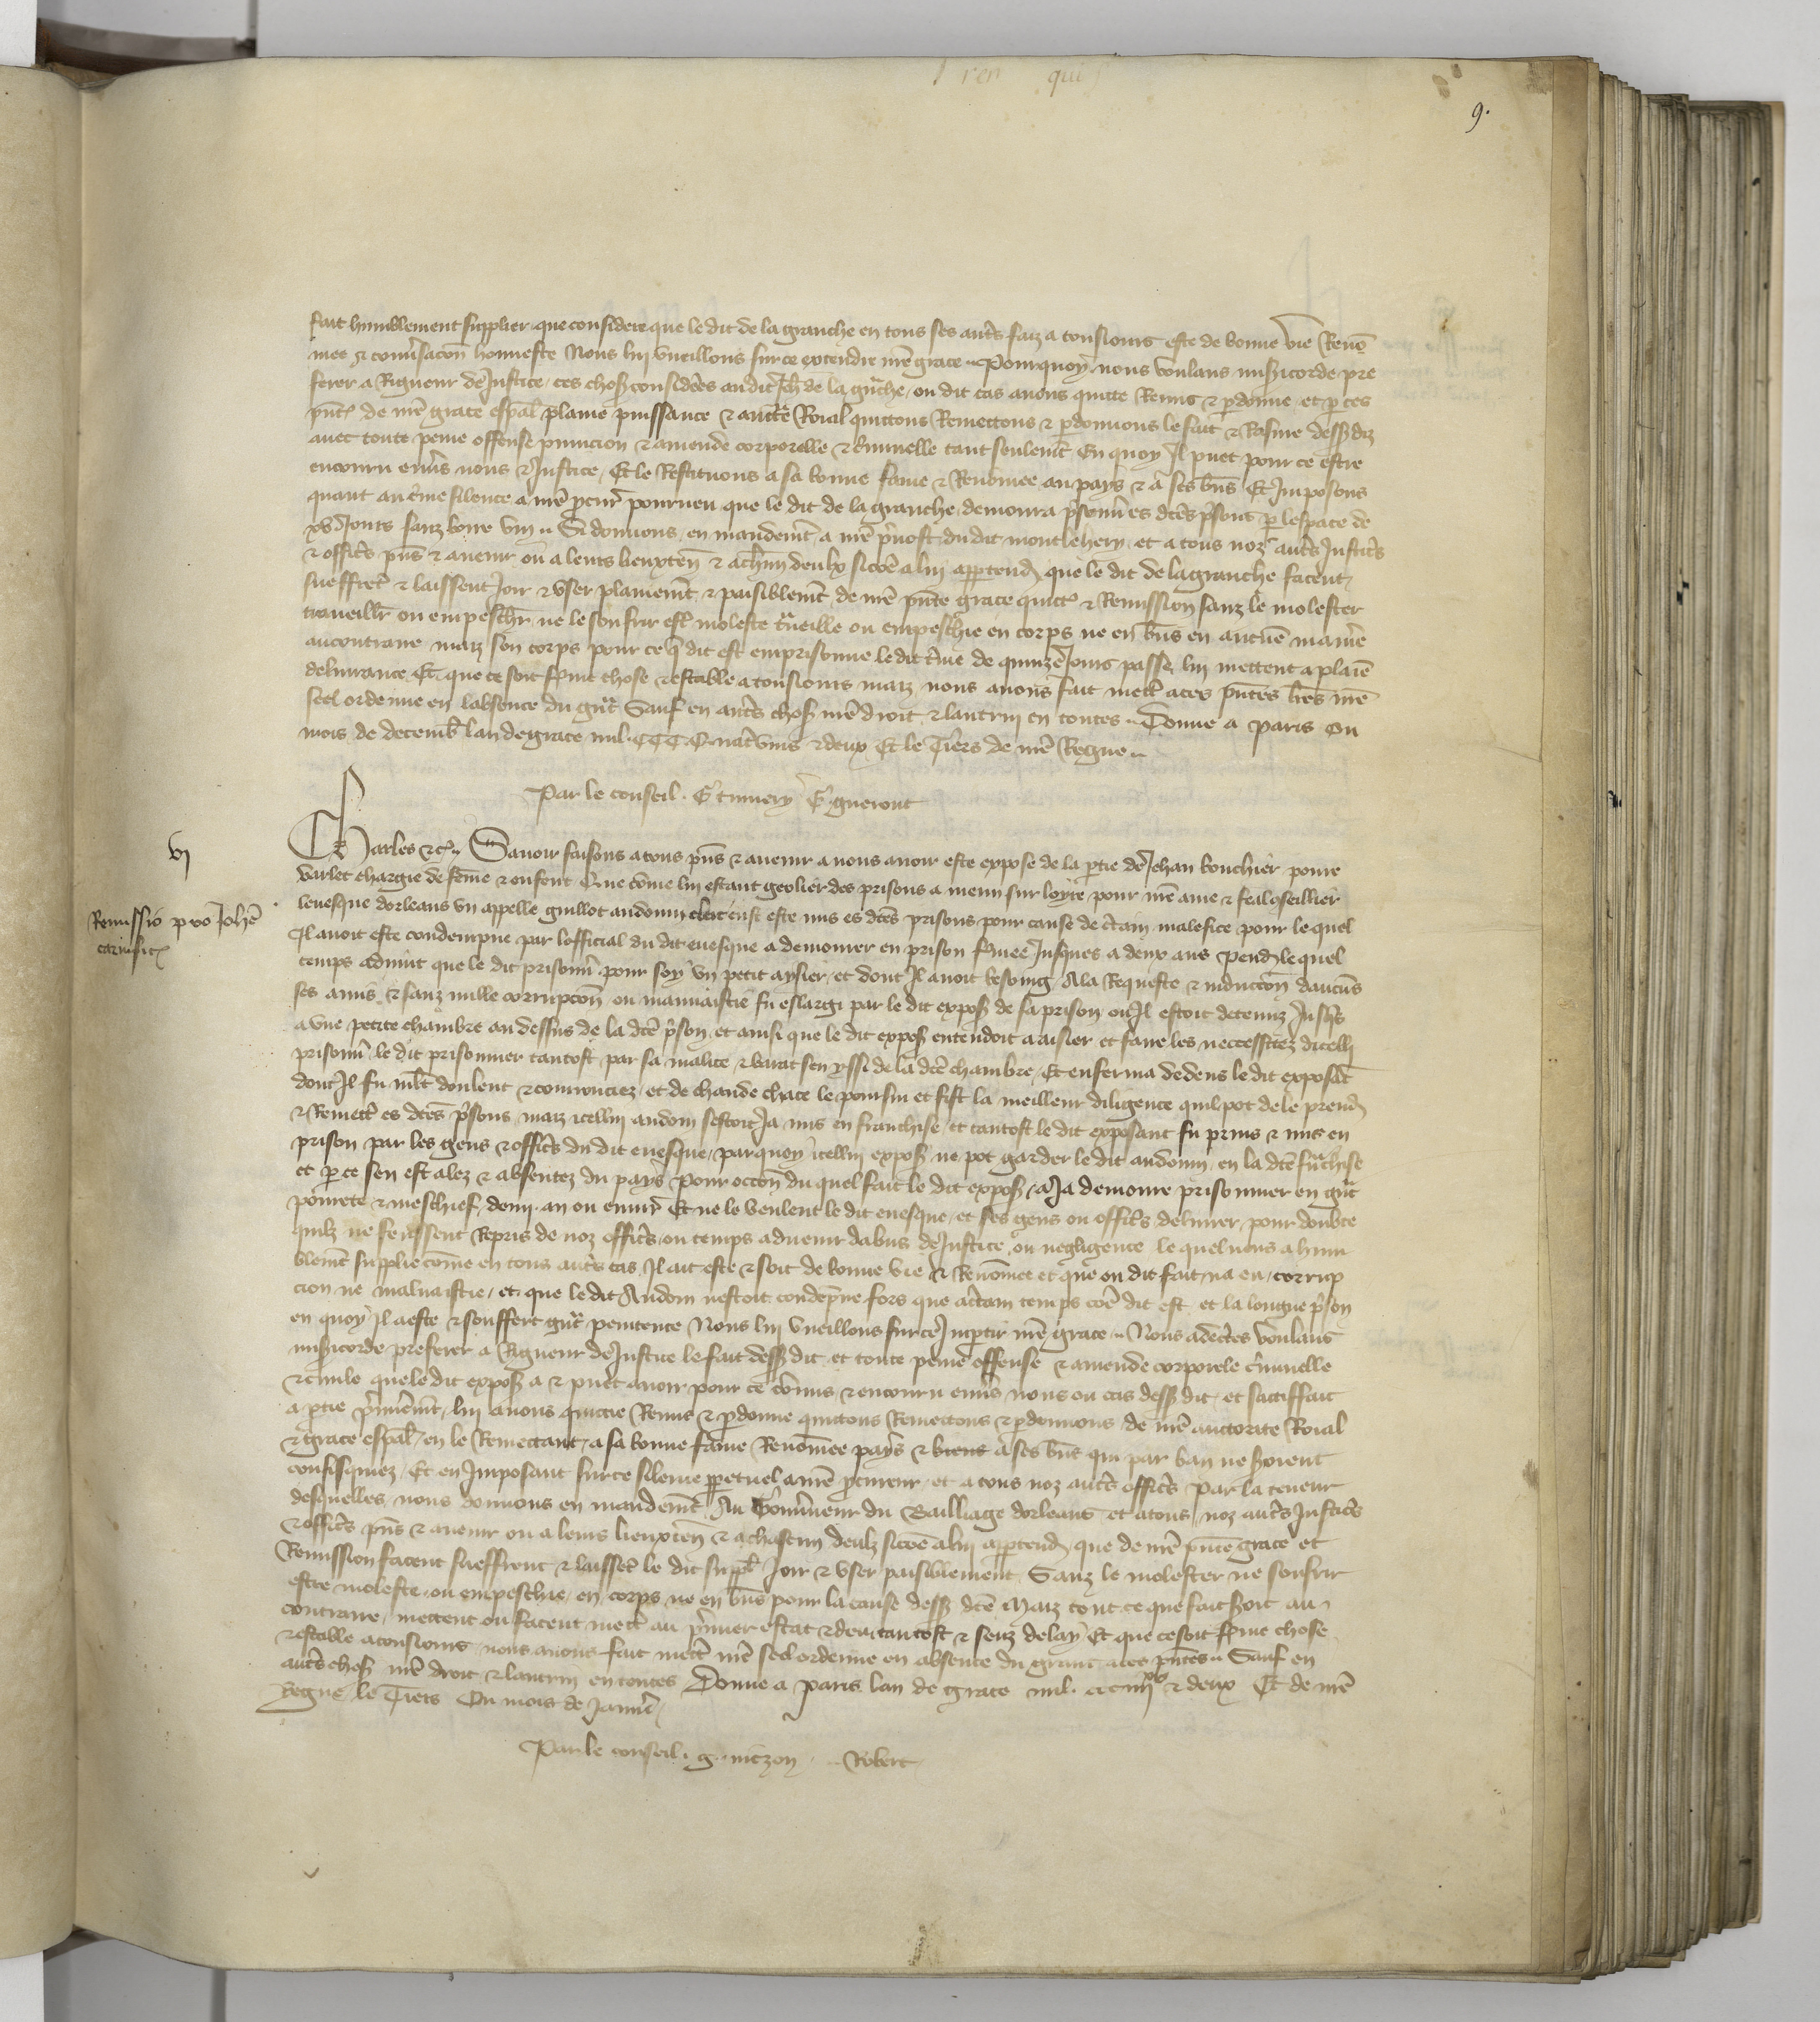 9.
fait humblement supplier que considere que le dit de la granche en tous ses aut̃s faiz a tousiours este de bonne vie Renõ
mee ⁊ conũsacõn honneste Nous lui vueillons sur ce extendre nr̃e grace Pourquoy nous voulans miẜicorde pre
ferer a Rigueur de Justice ces choses considẽes au dit Jeh̃ de la grãche ou dit cas auons quitte Remis ⁊ ꝑdonne et ꝑ ces
pñt̃ de nr̃e grace esp̃al plaine puissance ⁊ auct̃e Roial quittons Remettons ⁊ ꝑdonnons le fait ⁊ dessꝰdiz
auec toute peine offense punicion ⁊ amende corporelle ⁊ c̃minelle tant seulem̃t En quoy Il puet pour ce estre
encouru enũs nous ⁊ Justice Et le Restituons a sa bonne fame ⁊ Renõmee au pays ⁊ a ses bñs Et Imposons
quant au c̃me silence a nr̃e ꝓcur̃ pourueu que le dit de la granche demourra p̃sonñ es dc̃es p̃sons ꝑ lespace de
xv Jours sanz boire vin Si donnons en mandem̃t a nr̃e p̃uost du dit montlehery et a tous noz aut̃s Justic̃s
⁊ offic̃s pñs ⁊ auenir ou a leurs lieuxteñ ⁊ a ch̃un deulx sicõe a lui apꝑtendr̃ que le dit de la granche facent
sueffrẽt ⁊ laissent Joir ⁊ vser plainem̃t ⁊ paisiblem̃t de nr̃e pñte grace quict̃ ⁊ Remission sanz le molester
trauaillr̃ ou empeschr̃ ne le souffrir est̃ moleste t̃ueillie ou empeschie en corps ne en bñs en aucũe manie͂
au contraire maiz son corps pour ce q̃ dit est emprisonne le dit t̃me de quinze Jours passe lui mettent a plaĩe
deliurance Et que ce soit ferme chose ⁊ estable a tousiours maiz nous auons fait mett̃ a ces pñtes lr̃es nr̃e
seel ordenne en labsence du gñt Sauf en aut̃s choses nr̃e droit ⁊ lautrui en toutes Donne a Paris Ou
mois de decemb̃ lan de grace mil CCC quat̃vins ⁊ deux Et le Tiers de nr̃e Regne
Par le conseil
vj
Charles ⁊c̃ Sauoir faisons a tous pñs ⁊ auenir a nous auoir este expose de la ꝑtie de Jehan bouchier poure
varlet chargie de fẽme ⁊ enfent Que cõme lui estant geolier des prisons a meun sur loyre pour nr̃e ame ⁊ feal ꝯseillier
Remissio pro Joh̃e
leuesque dorleans vn appelle guillot audouin clerc eust este mis es dc̃es prisons pour cause de c̃tain malefice pour le quel
carnific̃
Il auoit este condempne par lofficial du dit euesque a demourer en prison fermee Jusques a deux ans pendã lequel
temps aduint que le dit prisonñ pour soy vn petit aysier et dont Il auoit besoing A la Requeste ⁊ inducc̃on daucũs
ses amis ⁊ sanz nulle corrupc̃on ou mauuaistie fu eslargi par le dit expoẜ de sa prison ou Il estoit detenuz Jusq̃s
a vne petite chambre au dessus de la dc̃e p̃son et ainsi que le dit expoẜ entendoit a aisier et faire les neccessitez dicelli
prisonñ le dit prisonnier tantost par sa malice ⁊ barat sen yssi de la dc̃e chambre Et enferma dedens le dit exposãt
dont Il fu ml̃t doulent ⁊ courrouciez et de chaude chace le poursui et fist la meilleur diligence quil pot de le prendr̃
⁊ Remett̃ es dc̃es p̃sons maiz icellui audoin sestoit Ja mis en franchise et tantost le dit exposant fu prins ⁊ mis en
prison par les gens ⁊ offic̃s du dit euesque parquoy icellui expoẜ ne pot garder le dit audouin en la dc̃e fr̃chise
et ꝑ ce sen est alez ⁊ absentez du pays Pour occõn du quel fait le dit expoẜ a Ja demoure prisonnier en gr̃t
pourete ⁊ meschief demi an ou enuir̃ Et ne le veulent le dit euesque et ses gens ou offic̃s deliurer pour doubte
quilz ne feussent Repris de noz offic̃s ou temps aduenir dabus de Justice ou negligence le quel nous a hum
blem̃t supplie cõme en tous aut̃s cas Il ait este ⁊ soit de bonne vie ⁊ Renõmee et que ou dit fait na eu corrup
cion ne maluaistie et que le dit Audoin nestoit condep̃ne fors que a c̃tain temps cõe dit est et la longue p̃son
en quoy Il a este ⁊ souffert gr̃t penitence Nous lui vueillons sur ce Imꝑtir nr̃e grace Nous adec̃tes voulans
miẜicorde preferer a Rigueur de Justice le fait dessꝰ dit et toute peine offense ⁊ amende corporele c̃minelle
⁊ ciuile que le dit expoẜ a ⁊ puet auoir pour ce cõmis ⁊ encouru enũs nous ou cas dessꝰ dit et satiffait
a ꝑtie p̃mierem̃t lui auons quittie Remis ⁊ ꝑdonne quittons Remettons ⁊ ꝑdonnons de nr̃e auctorite Roial
⁊ grace esp̃al en le Remettant a sa bonne fame Renõmee pays ⁊ biens a ses bñs qui par ban ne soient
confisquiez Et en Imposant sur ce silence ꝑpetuel a nr̃e ꝓcureur et a tous noz aut̃s offic̃s Par la teneur
desquelles nous donnons en mandem̃t Au Gouũneur du Bailliage dorleans et a tous noz aut̃s Justic̃s
⁊ offic̃s pñs ⁊ auenir ou a leurs lieuxteñ ⁊ a chascun deulz sicõe a lui apꝑtendr̃ que de nr̃e pñte grace et
Remission facent sueffrent ⁊ laissẽt le dit suppl̃ Joir ⁊ vser paisiblement Sanz le molester ne soufrir
estre moleste ou empeschie en corps ne en bñs pour la cause dessꝰ dc̃e Maiz tout ce que fait soit au
contraire mettent ou facent mett̃ au p̃mier estat ⁊ deu tantost ⁊ senz delay Et que ce soit ferme chose
⁊ estable a tousiours nous auons fait mett̃ nr̃e seel ordenne en absence du grant a ces pñtes Sauf en
aut̃s choses nr̃e droit ⁊ lautrui en toutes Donne a Paris lan de grace mil ccc iiijxx ⁊ deux Et de nr̃e
Regne le Tiers Ou mois de Januĩe
Par le conseil g. nitzon Robert